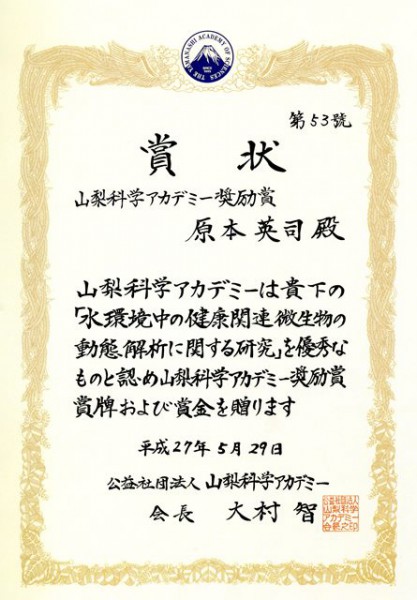 THE YAMANASHI ACADEMY OF SCIENCES
第53號
賞状
山梨科学アカデミー奨励賞
原本英司殿
山梨科学アカデミーは貴下の
「水環境中の健康関連微生物の
動態解析に関する研究」を優秀な
ものと認め山梨科学アカデミー奨励賞
賞牌および賞金を贈ります
平成27年5月29日
公益社団法人 山梨科学アカデミー
会長 大村智
公益社団法人
山梨科学
アカデミー
会長之印